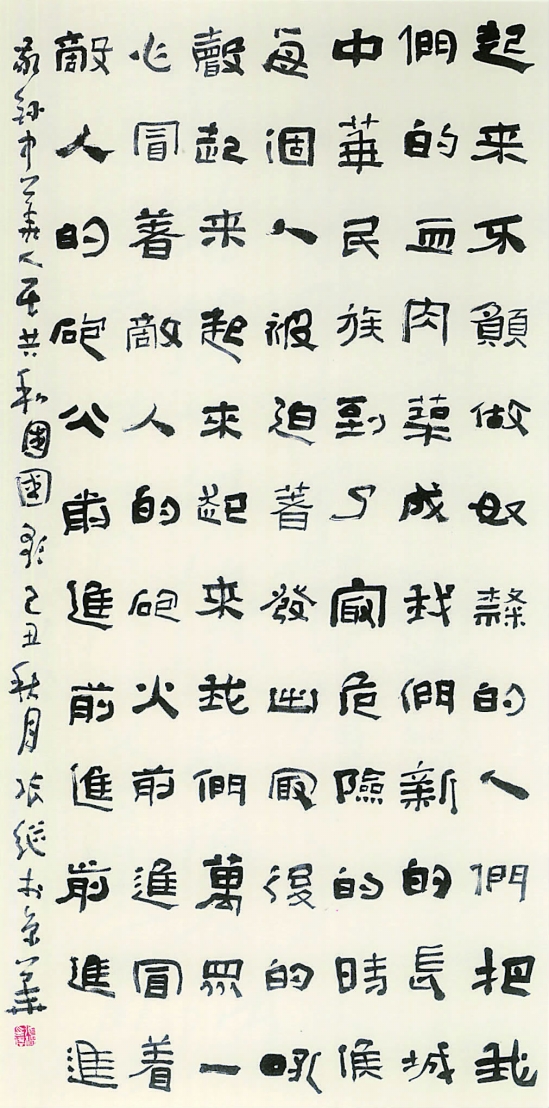 起来不願做奴隸的人們把我
們的血肉築成我們新的長城
中華民族到了最危險的時候
每個人被迫著發出最後的吼
聲起来起来起来我們萬眾一
心冒著敵人的砲火前進冒着
敵人的砲火前進前進前進進
敬錄中華人民共和國國歌己丑秋月張继书京華